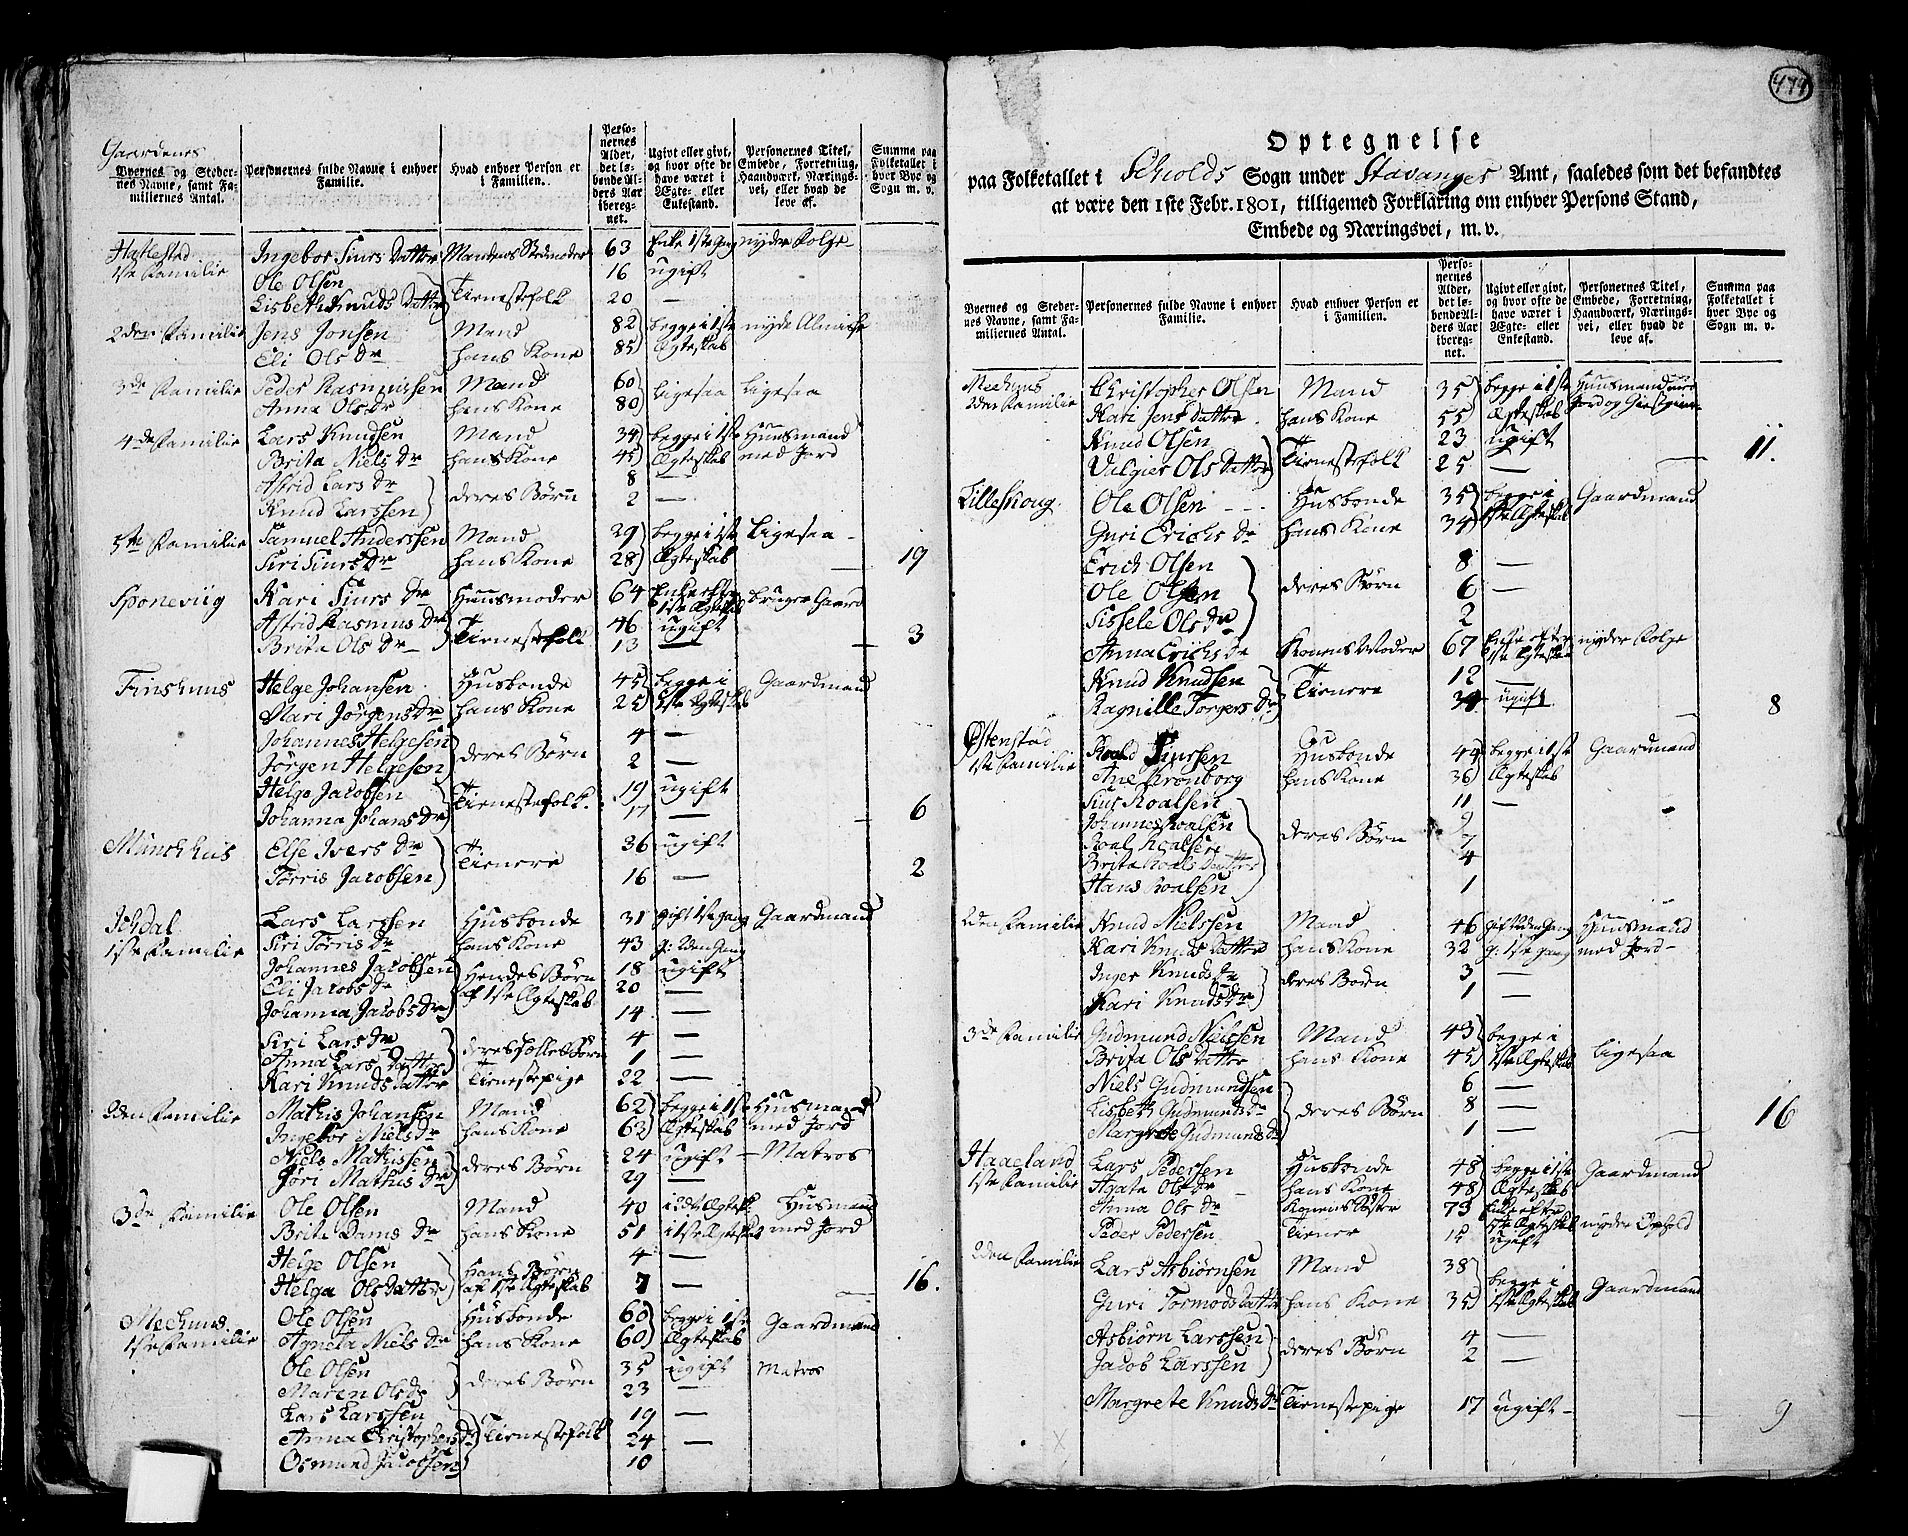 Gaardenes
Byernes og Stedernes Navne, samt Familiernes Antal.
Personernes fulde Navne i enhver Familie.
Hvad enhver Person er i Familien.
Personernes Alder, det løbende Alders Aar iberegnet.
Ugivt eller givt, og hvor ofte de have været i Ægte- eller Enkestand.
Personernes Titel, Embede, Forretning, Haandværk, Nærings-vei, eller hvad de leve af.
Summa paa Folketallet i hver Bye og Sogn m. v.
1ste Familie Ingebor Siurs Datter Mandens Stedmoder 63 Enke 1ste Gang nyde Folge
Ole Olsen 16 ugift
Lisbeth Knuds Datter Tienestefolk 20 —
2den Familie Jens Jonsen Mand 82 begge i 1ste nyde Almisse
Eli Ols Dr hans Kone 85 Ægteskab
3de Familie Peder Rasmusen Mand 60 ligesaa Ligesaa
Anna Ols Dr hans Kone 80
4de Familie Lars Knudsen Mand 34 begge i 1ste Huusmand
Brita Niels Dr hans Kone 45 Ægteskab med Jord
Astrid Lars Dr 8 —
Knud Larssen deres Børn 2 —
5te Familie Samuel Anderssen Mand 29 begge i 1ste Ligesaa
Siri Siurs Dr hans Kone 28 Ægteskab — 19
Sponeviig Kari Siurs Dr Huusmoder 64 Enke efter 1ste Ægteskab bruger Gaard
Astrid Rasmus Dr 46 ugift
Brita Ols Dr Tienestefolk 13 — 3
Finshuus Helge Johansen Husbonde 45 begge i Gaardmand
Mari Jörgens Dr hans Kone 25 1ste Ægteskab
Johannes Helgesen 4 —
Jörgen Helgesen deres Børn 2 —
Helge Jacobsen 19 ugift
Johanna Johans Dr Tienestefolk 17 — 6
Münchhus Else Ivers Dr 36 ugift
Torris Jacobsen Tienere 16 — 2
Ichdal
1ste Familie Lars Larssen Husbonde 31 gift 1ste Gang Gaardmand
Siri Torris Dr hans Kone 43 g: 2den Gang
Johannes Jacobsen Hendes Børn 18 ugift
Eli Jacobs Dr af 1ste Ægteskab 20 —
Johanna Jacobs Dr 14 —
Siri Lars Dr 4 —
Anna Lars Datter deres fælles Børn 1 —
Kari Knuds Datter Tienestepige 22 —
2den Familie Mathis Johansen Mand 62 begge i 1ste Husmand
Ingebor Niels Dr hans Kone 62 Ægteskab med Jord
Niels Mathissen 24 ugift — Matros
Jøri Mathis Dr deres Børn 29 —
3de Familie Ole Olsen Mand 40 i 2det Ægtesk. Husmand
Brita Dams Dr hans Kone 51 i 1ste Ægteskab med Jord
Helge Olsen Hans Børn 4 —
Helga Ols Datter af 1ste Ægteskab 7 — 16.
Mechuus
1ste Familie Ole Olsen Husbonde 60 begge i 1ste Gaardmand
Agneta Niels Dr hans Kone 60 Ægteskab
Ole Olsen 35 ugift Matros
Maren Ols Dr deres Børn 23 —
Lars Larssen 19 —
Anna Christophers Dr Tienestefolk 24 —
Osmund Jacobsen 10
474
Optegnelse
paa Folketallet i Schiolds Sogn under Stavanger Amt, saaledes som det befandtes
at være den 1ste Febr. 1801, tilligemed Forklaring om enhver Persons Stand,
Embede og Næringsvei, m. v.
Byernes og Stedernes Navne, samt Familiernes Antal.
Personernes fulde Navne i enhver Familie.
Hvad enhver Person er i Familien.
Personernes Alder, det løbende Alders Aar iberegnet.
Ugivt eller givt, og hvor ofte de have været i Ægte- eller Enkestand.
Personernes Titel, Embede, Forretning, Haandværk, Nærings-vei, eller hvad de leve af.
Summa paa Folketallet i hver Bye og Sogn m. v.
Mechuus
2den Familie Christopher Olsen Mand 35 begge i 1ste Huusmand
Kari Jens Datter hans Kone 55 Ægteskab Jord og
Knud Olsen 23 ugift
Valgier Ols Datter Tienestefolk 25 — 11.
Lilleskoug Ole Olsen Husbonde 35 begge i Gaardmand
Guri Erichs Dr hans Kone 34 1ste Ægteskab
Erich Olsen 8 —
Ole Olsen deres Børn 6 —
Sissele Ols Dr 2
Anna Erichs Dr Konens Moder 67 Enke efter 1ste Ægteskab nyder Folge
Knud Knudsen 12 —
Ragnille Torgers Dr Tienere ugift 8
Østenstad
1ste Familie Roald Siurssen Husbonde 44 begge i 1ste Gaardmand
Ane Kronborg hans Kone 36 Ægteskab
Siur Roalsen 11 —
Johannes Roalsen 9
Roal Roalsen deres Børn 7
Brita Roals Datter 4
Hans Roalsen 1
2den Familie Knud Nielssen Mand 46 gift 2den Gang Huusmand
Kari Knuds Datter hans Kone 32 g: 1ste Gang med Jord
Inger Knuds Dr deres Børn 3 —
Kari Knuds Dr 1 —
3de Familie Gudmund Nielssen Mand 43 begge i
Brita Ols Datter hans Kone 45 1ste Ægteskab Ligesaa
Niels Gudmundsen 6 —
Lisbeth Gudmunds Dr deres Børn 8 —
Margrete Gudmunds Dr 1 — 16
Haaeland
1ste Familie Lars Pedersen Husbonde 48 begge i 1ste Gaardmand
Agate Ols Dr hans Kone 48 Ægteskab
Anna Ols Dr Konens Søster 73 Enke efter 1ste Ægteskab nyder Ophold
Peder Pedersen Tiener 15 ugift
2den Familie Lars Asbiørnsen Mand 38 begge i Gaardmand
Guri Tormods Datter hans Kone 35 1ste Ægteskab
Asbiørn Larssen 4 —
Jacob Larssen deres Børn 2 —
Margrete Knuds Dr Tienestepige 17 ugift — 9